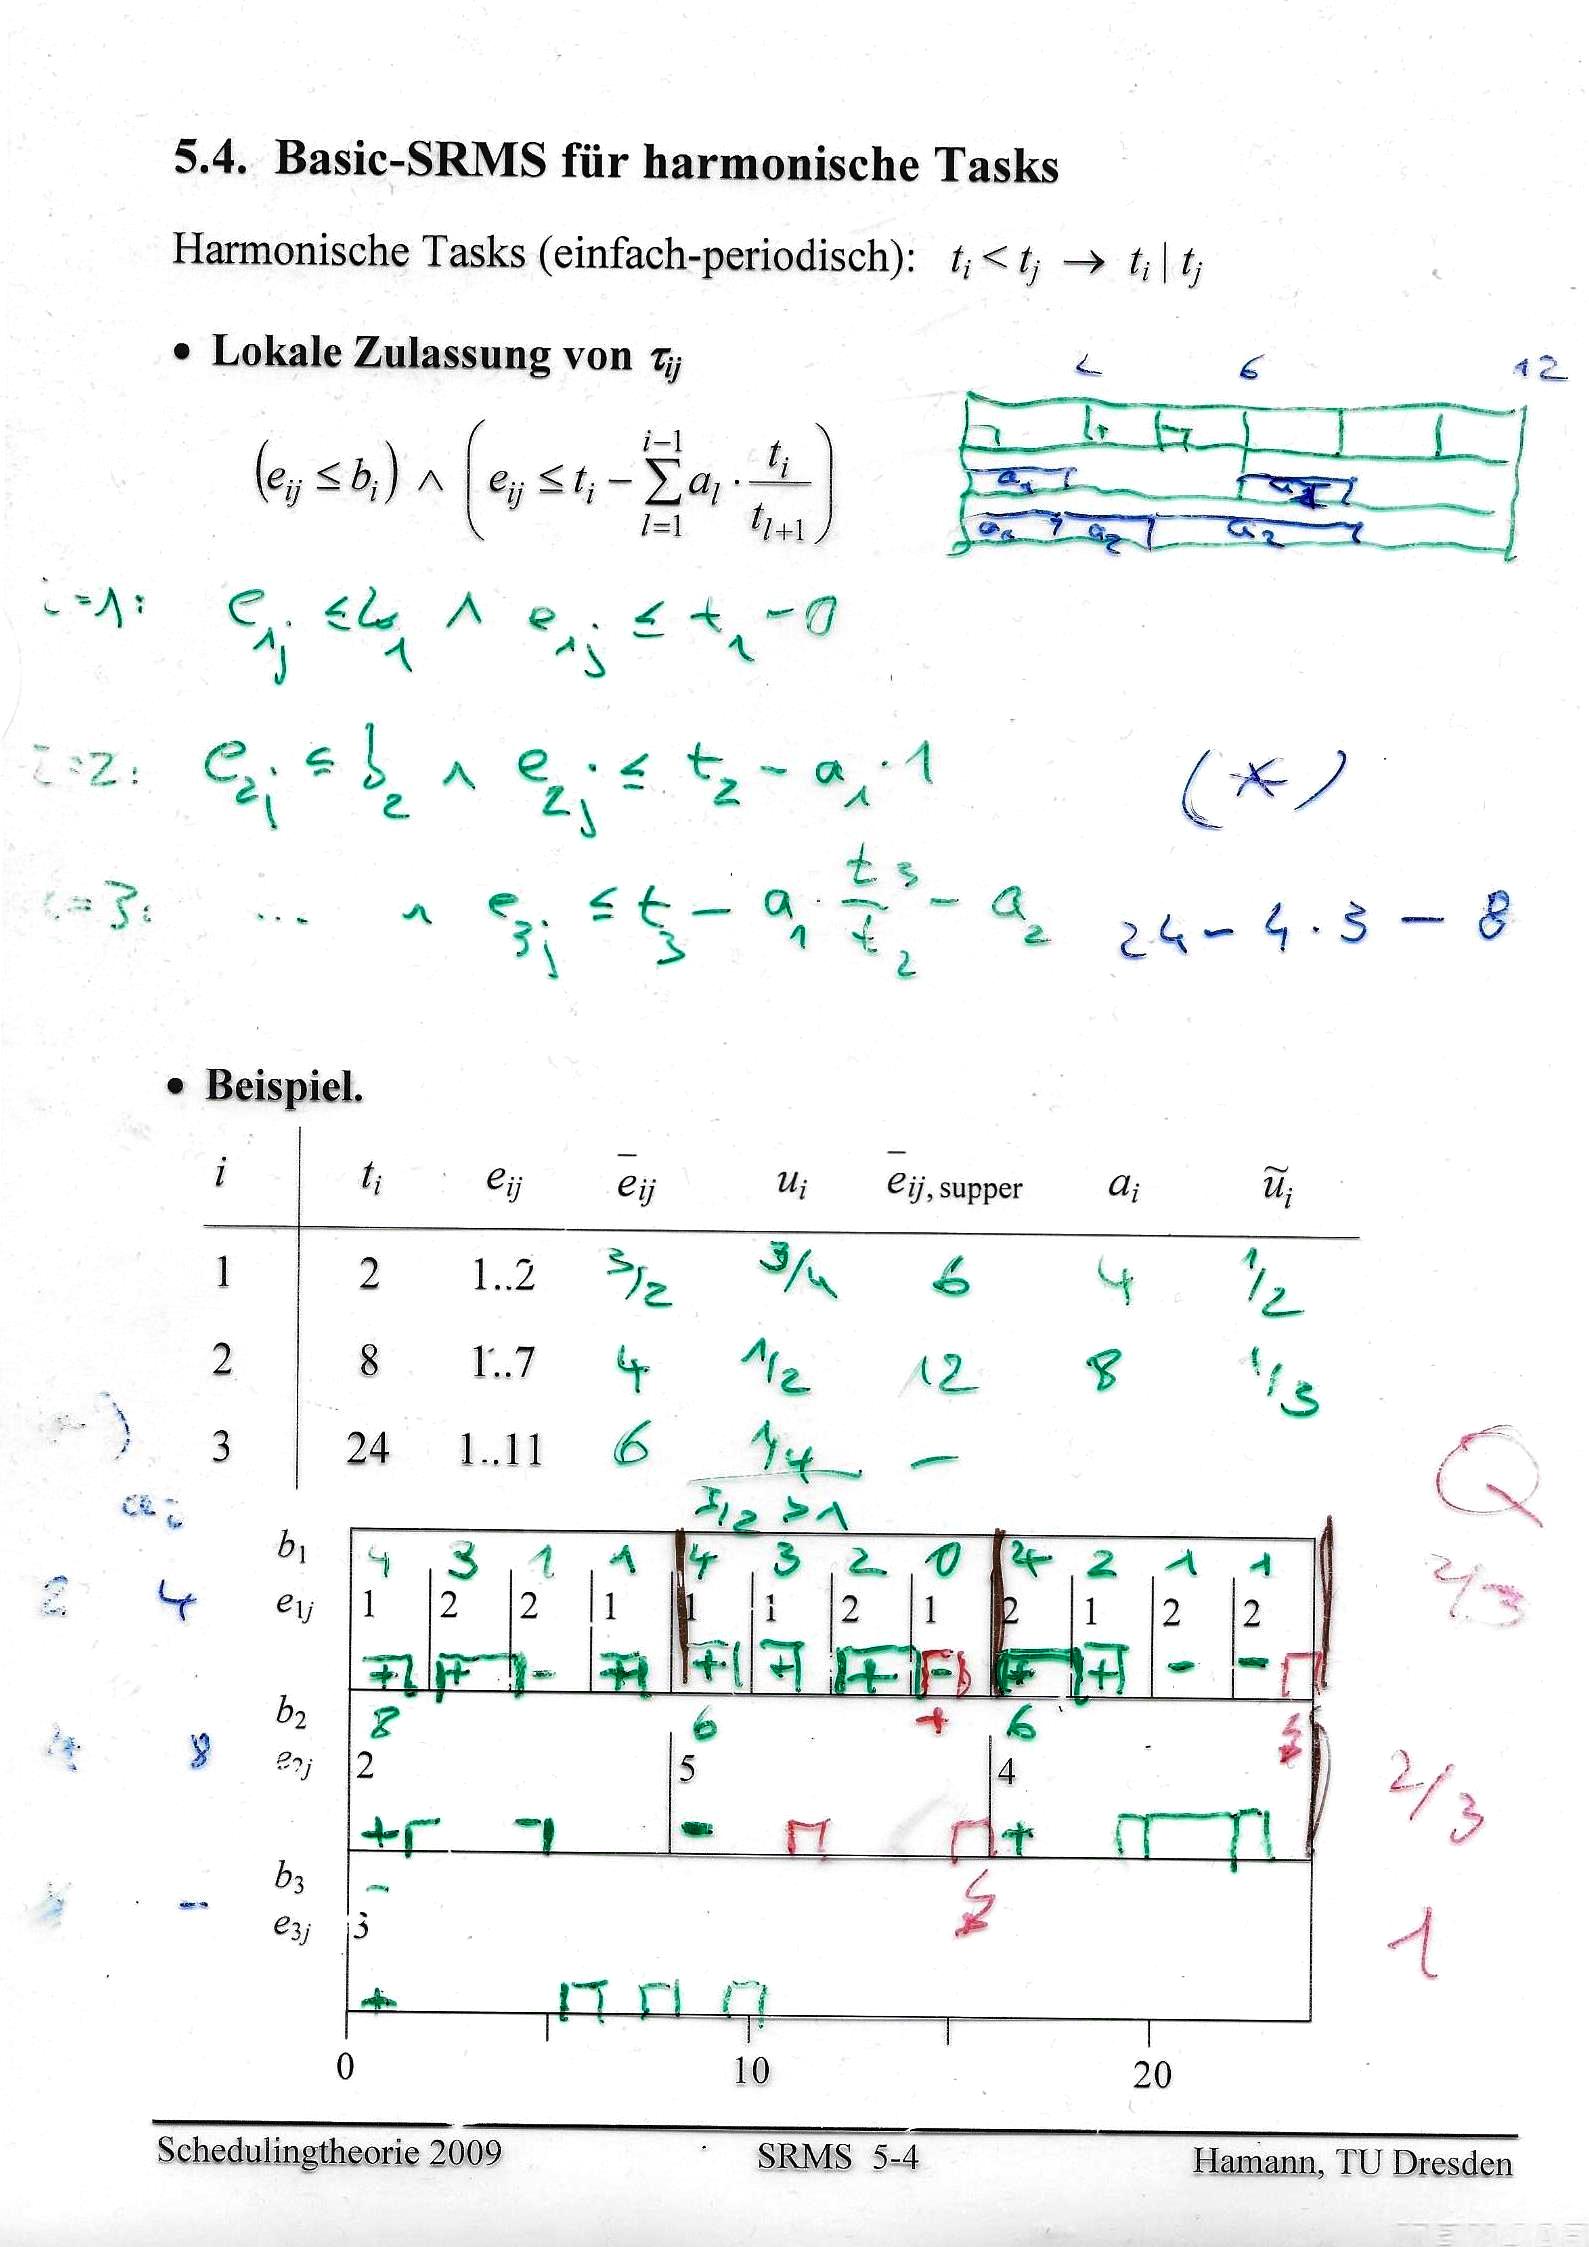 5.4. Basic-SRMS für harmonische Tasks
Harmonische Tasks (einfach-periodisch): t_i < t_j → t_i | t_j
• Lokale Zulassung von τ_ij
(e_ij ≤ b_i) ∧ (e_ij ≤ t_i − Σ_{l=1}^{i−1} a_l · t_i / t_{l+1})
6 12
a_1
a_2 a_2
i=1: e_1j ≤ b_1 ∧ e_1j ≤ t_1 − 0
i=2: e_2j ≤ b_2 ∧ e_2j ≤ t_2 − a_1 · 1 (*)
i=3: ... ∧ e_3j ≤ t_3 − a_1 · t_3 / t_2 − a_2 24 − 4 · 3 − 8
• Beispiel.
i t_i e_ij ē_ij u_i ē_ij, supper a_i ũ_i
1 2 1..2 3/2 3/4 6 4 1/2
2 8 1..7 4 1/2 12 8 1/3
3 24 1..11 6 1/4 −
3/2 > 1
a_i
Q
b_1 4 3 1 1 4 3 2 0 4 2 1 1
2 4 e_1j 1 2 2 1 1 1 2 1 2 1 2 2 2/3
+ + - + + + + - + + - -
b_2 8 6 + 6
4 8 e_2j 2 5 4 2/3
+ - +
b_3 -
- e_3j 3 1
+
0 10 20
Schedulingtheorie 2009 SRMS 5-4 Hamann, TU Dresden